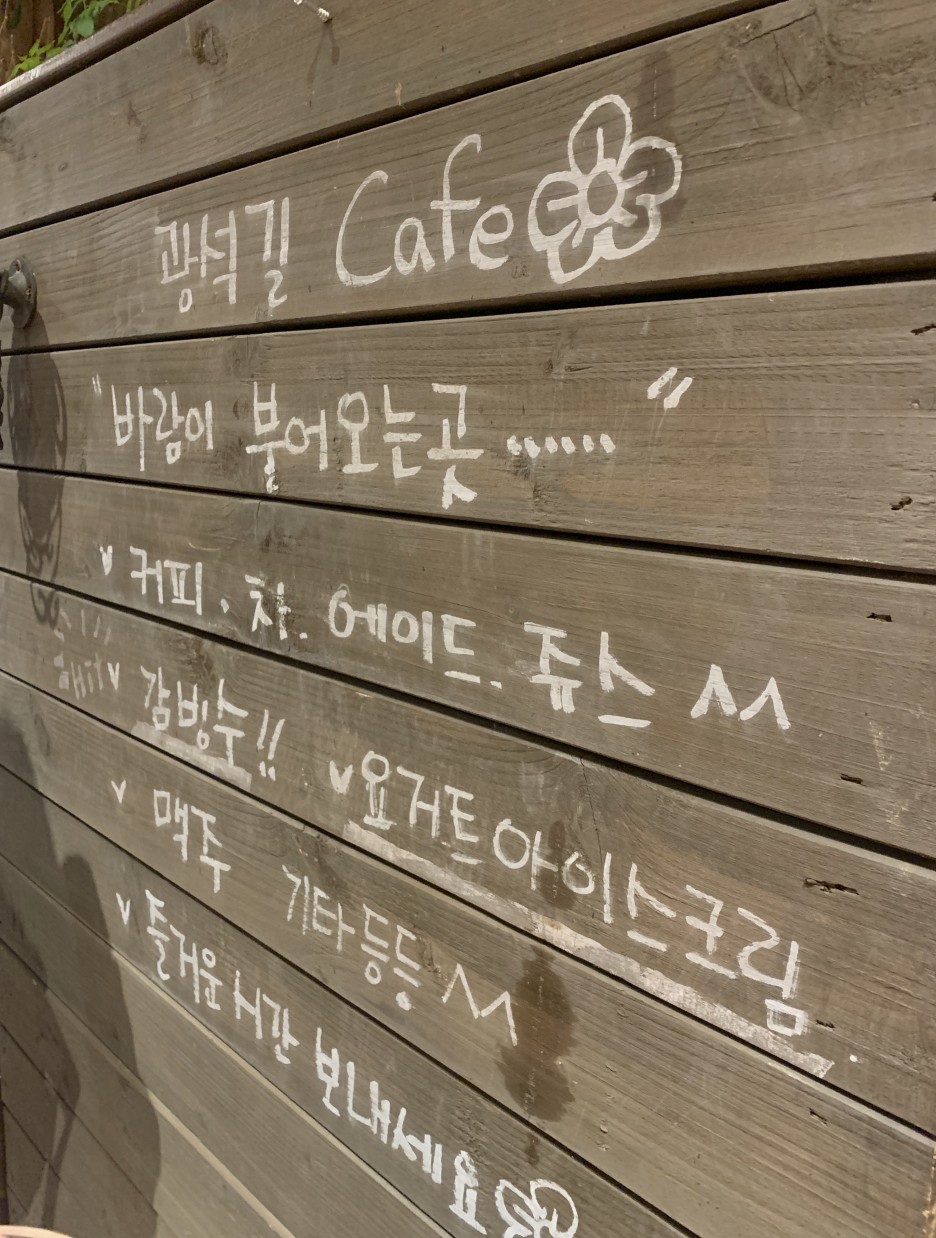 광석길 Cafe
"바람이 불어오는곳 ......"
v 커피. 차. 에이드. 쥬스 ^^
v 감빙수!! v 요거트아이스크림.
v 맥주 기타등등 ^^
v 즐거운시간 보내세요